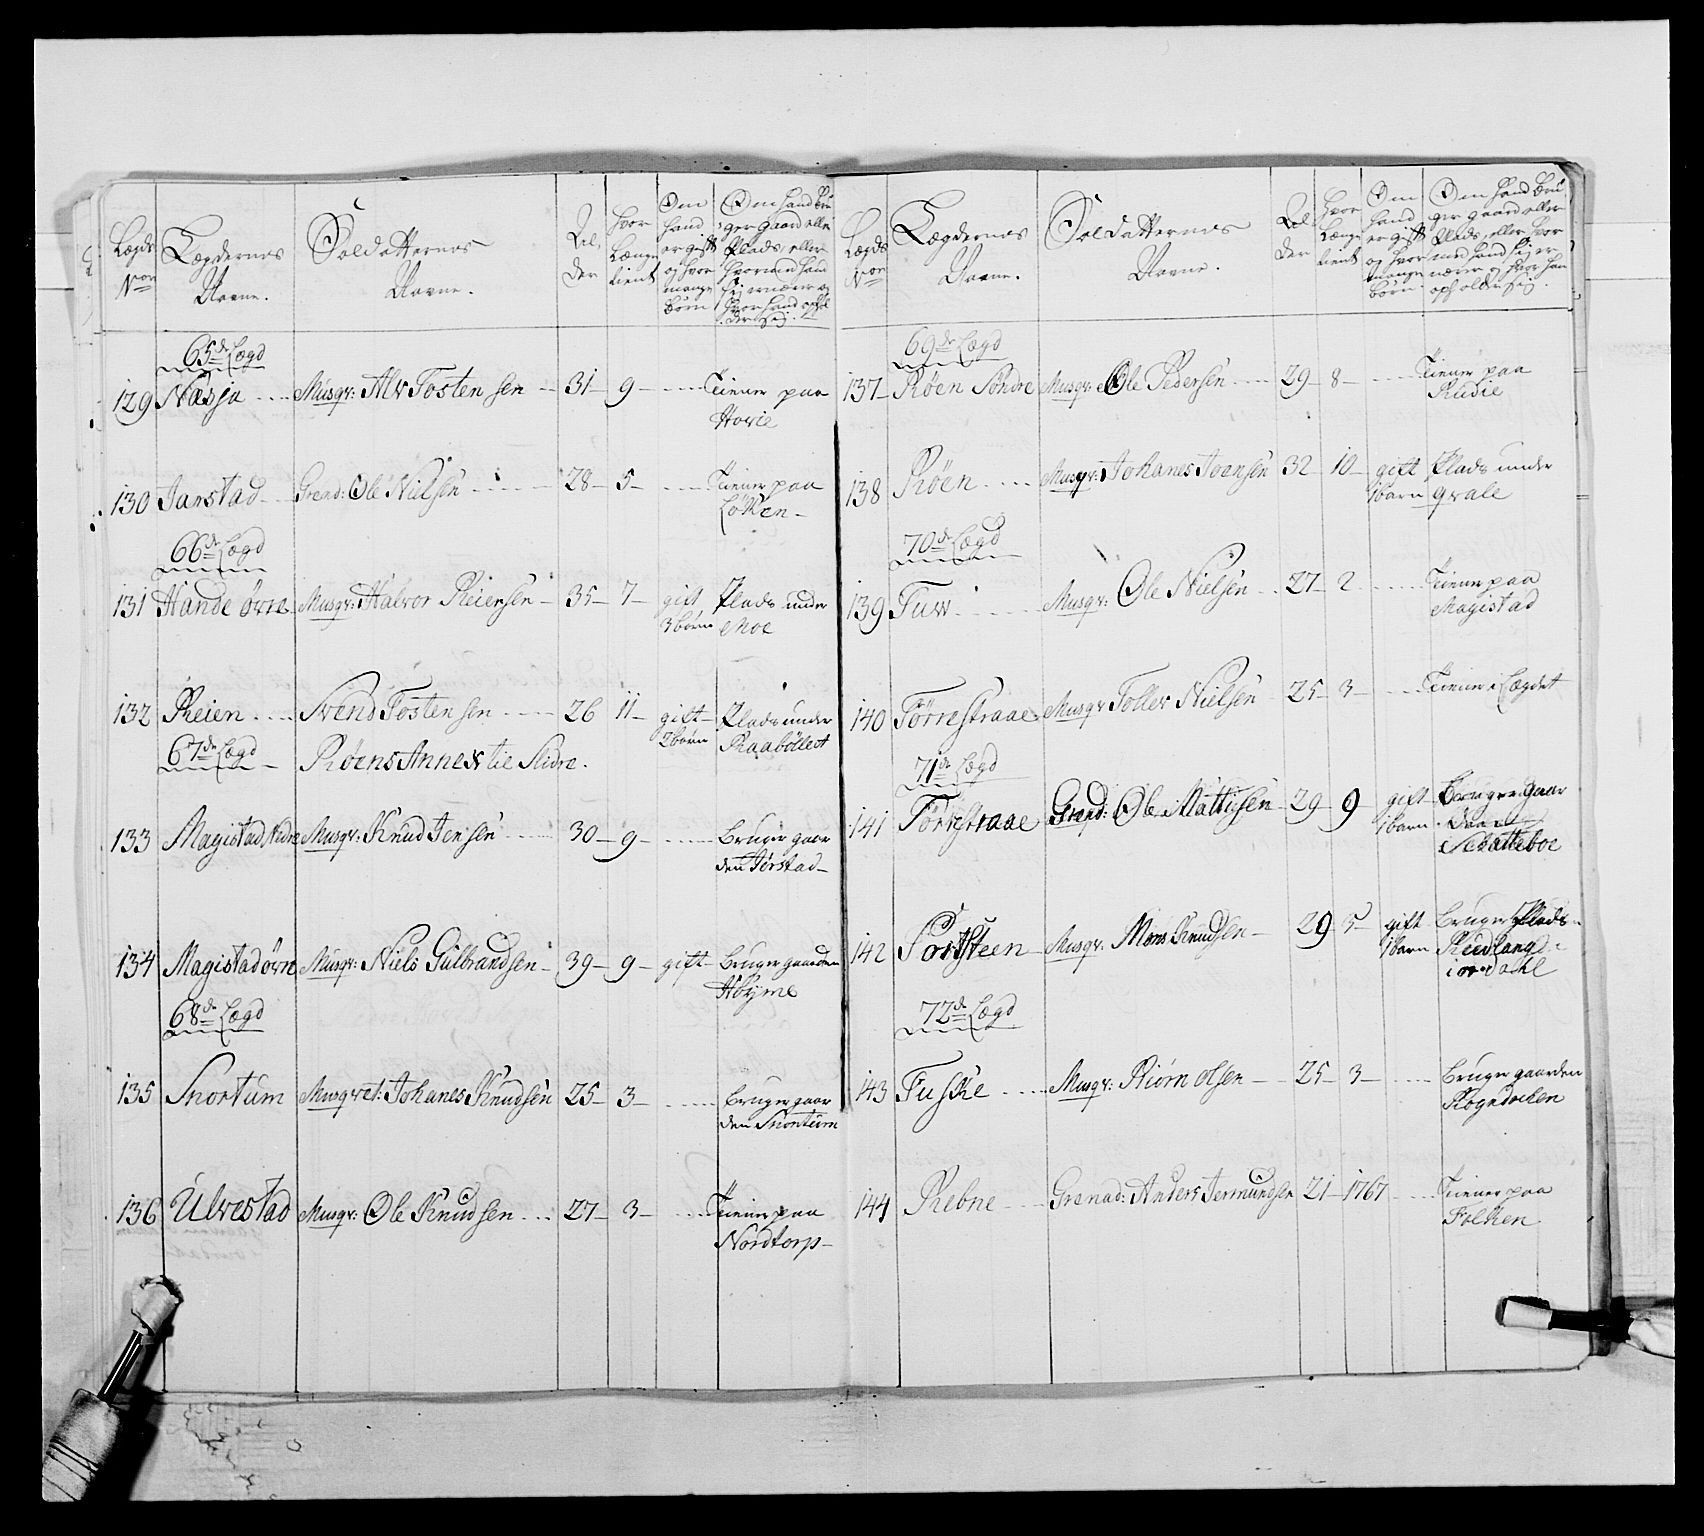 Lægds Nor
Lægdernes Navne.
Soldatternes Navne.
Alder
hvor Længe tient
Om hand er gift og hvor mange børn
Om hand bruger gaard eller Plads, eller hvormed hand sig ernærer og hvor hand opholder sig.
65de Lægd
129 Næsja Musqr: Alv Tostensen 31 9 Tiener paa Hovie
130 Jarstad Grend: Ole Nielsen 28 5 Tiener paa Løken
66de Lægd
131 Hande øvre Musqr: Halvor Reiersen 35 7 gift 3 børn Plads under Moe
132 Reien Svend Tostensen 26 11 gift 2 børn Plads under Raabøllet
67de Lægd Røens Annex til Slidre.
133 Magistad Nedre Musqr: Knud Jensen 30 9 Bruger gaarden Jørstad
134 Magistad øvre Musqr: Niels Gulbrandsen 39 9 gift Bruger gaarden
68de Lægd
135 Snortum Musqvet: Johanes Knudsen 25 3 Bruger gaarden Snortum
136 Ulvestad Musqr: Ole Knudsen 27 3 Tiener paa Nordtorp
Lægds Nor
Lægdernes Navne.
Soldatternes Navne.
Alder
hvor længe tient
Om hand er gift og hvor mange børn
Om hand bruger gaard eller Plads, eller hvormed hand sig ernærer og hvor han opholder sig.
69de Lægd
137 Røen Søndre Musqr: Ole Pedersen 29 8 Tiener paa Rudie
138 Røen Musqr: Johanes Joensen 32 10 gift 1 barn Plads under Qvale
70de Lægd
139 Tuv Musqr: Ole Nielsen 27 2 Tiener paa Magistad
140 Tørrestraae Musqr Tollev Nielsen 25 3 Tiener i Lægdet
71de Lægd
141 Tørrestraae Grend: Ole Mattisen 29 9 gift 1 barn Bruger gaarden
142 Musqr. Mons Knudsen 29 5 gift 1 barn Bruger Plads
72de Lægd
143 Fuske Musqr: Biørn Olsen 25 3 Bruger gaarden
144 Rebne Grenad: Anders Jermundsen 21 1767 Tiener paa Folken